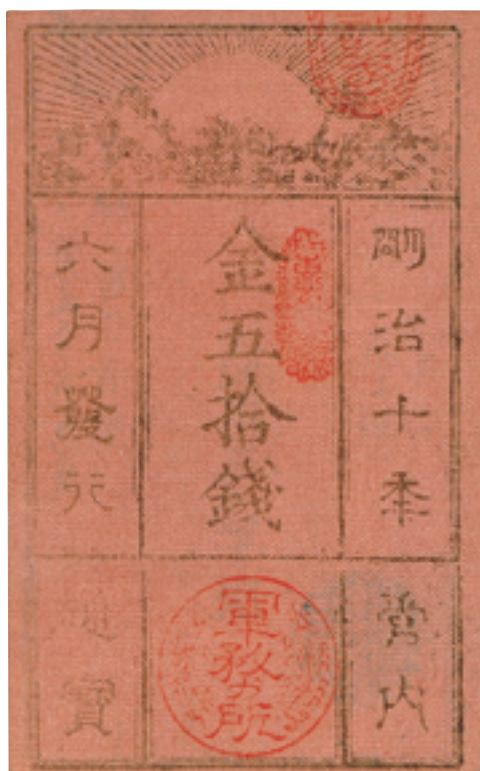 明治十秊
金五拾錢
六月發行
管内
軍務所
通寶